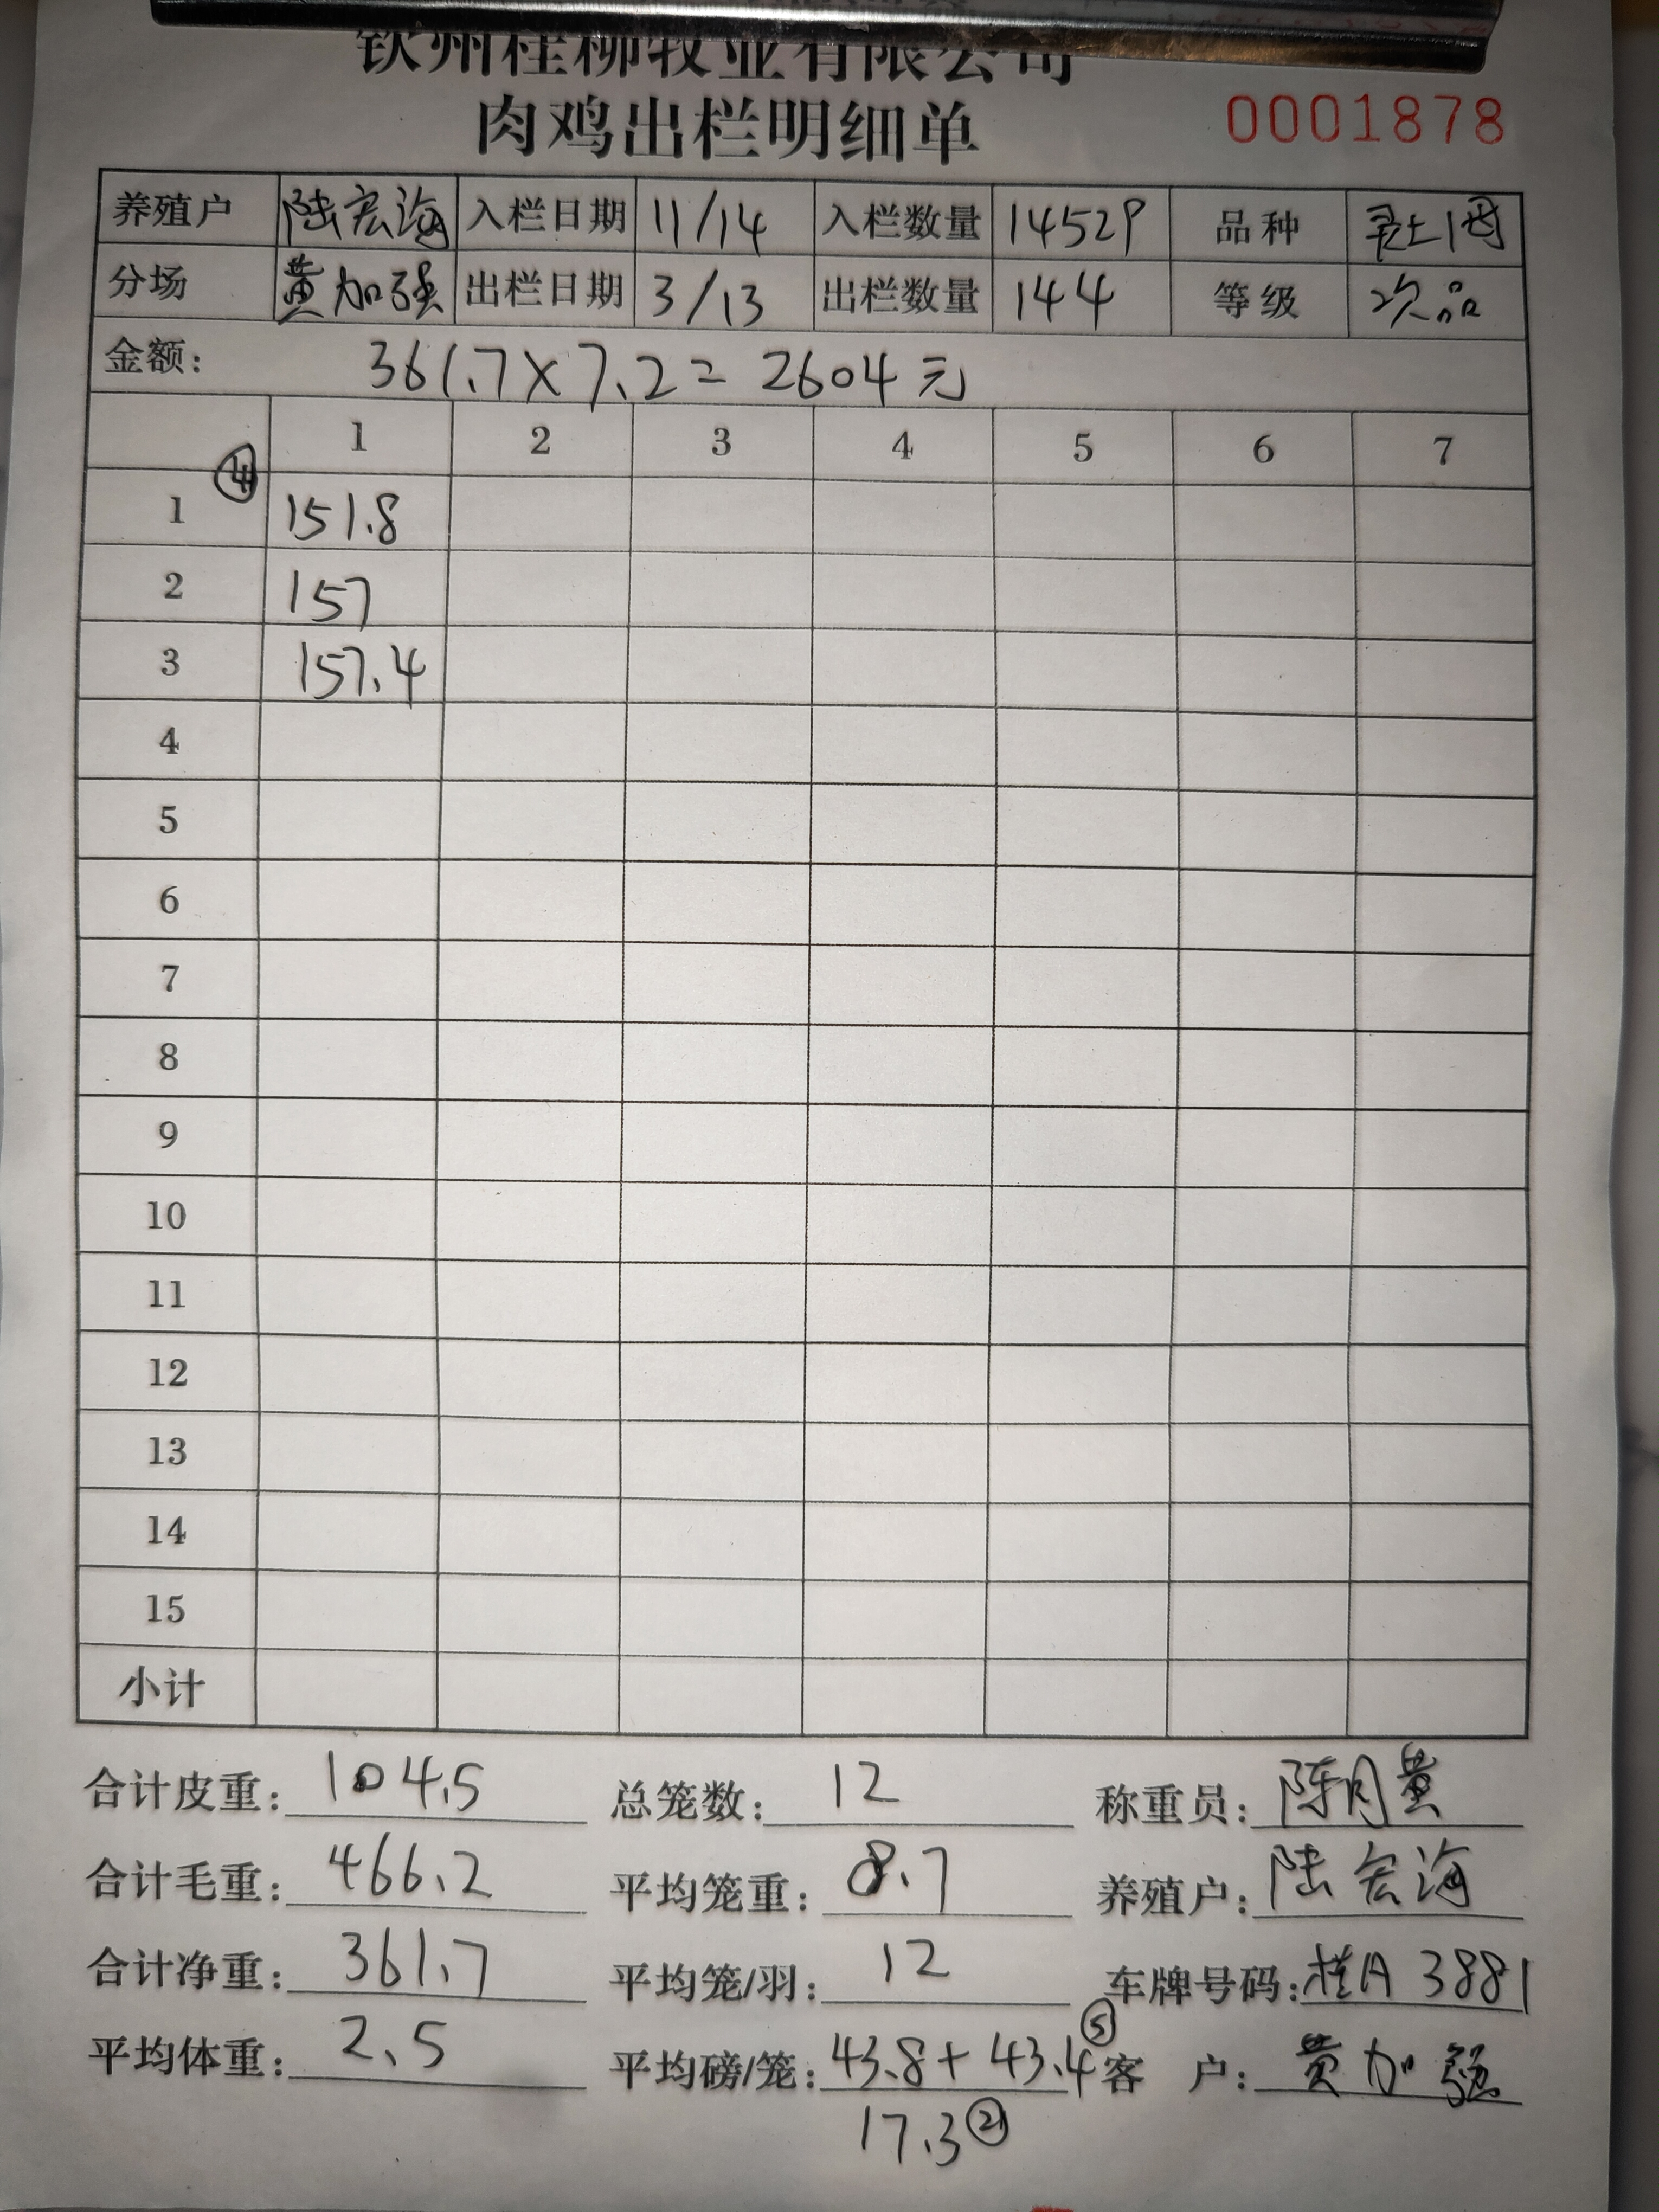 钦州桂柳牧业有限公司
肉鸡出栏明细单 0001878
养殖户 陆宏海 入栏日期 11/14 入栏数量 14529 品种
分场 黄加强 出栏日期 3/13 出栏数量 144 等级 次品
金额: 361.7×7.2=2604元
1 2 3 4 5 6 7
④
1 151.8
2 157
3 157.4
4
5
6
7
8
9
10
11
12
13
14
15
小计
合计皮重: 104.5 总笼数: 12 称重员: 陈月黄
合计毛重: 466.2 平均笼重: 8.7 养殖户: 陆宏海
合计净重: 361.7 平均笼/羽: 12 车牌号码: 桂A 3881
平均体重: 2.5 平均磅/笼: 43.8+43.4⑤ 客 户: 黄加强
17.3②